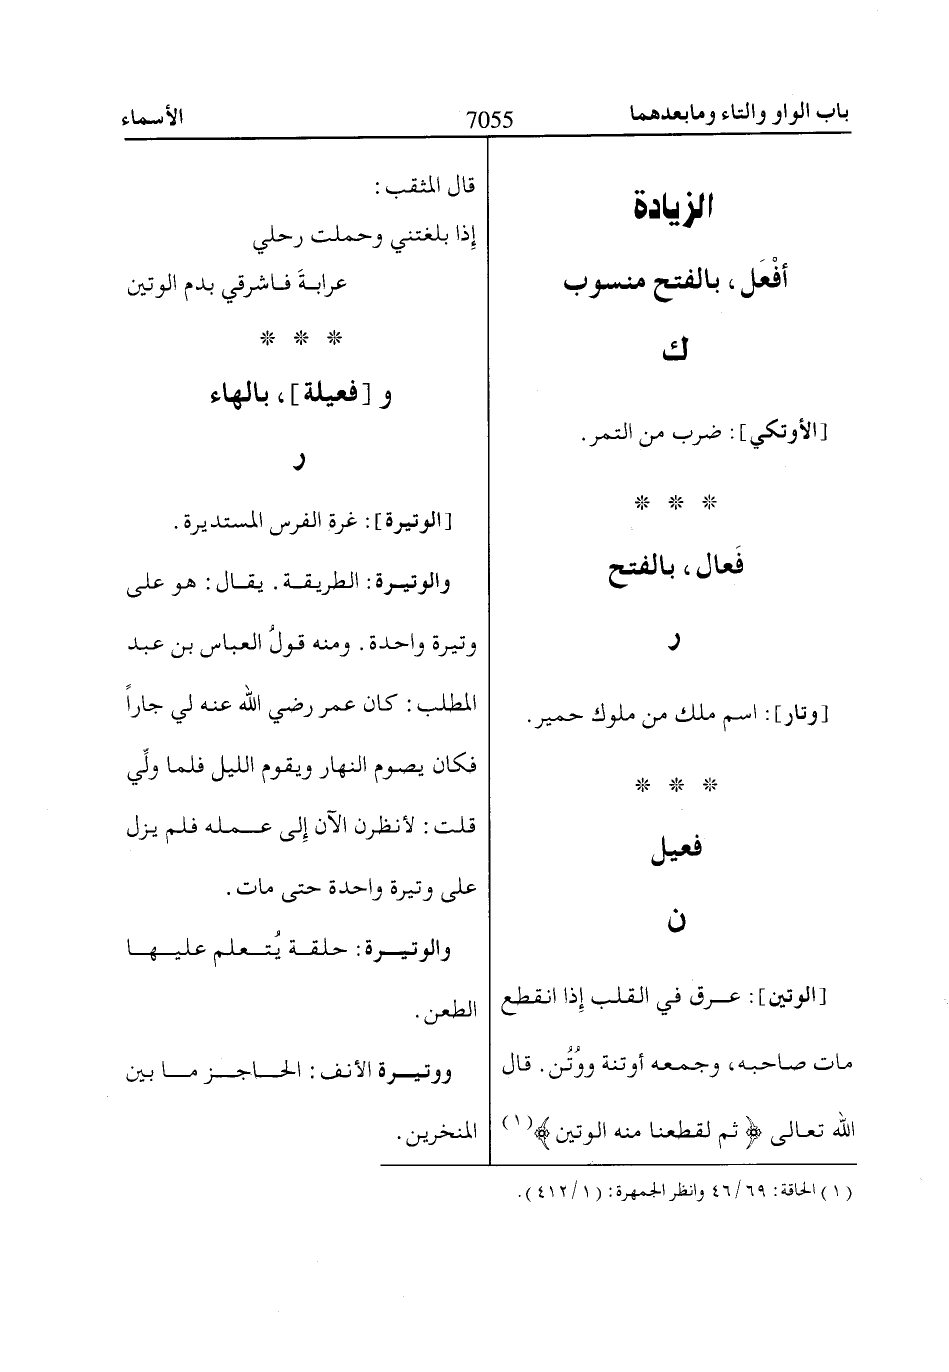 باب الواو والتاء وما بعدهما 7055 الأسماء
الزيادة
أفْعَل، بالفتح منسوب
ك
[الأوتكي]: ضرب من التمر.
* * *
فَعال، بالفتح
ر
[وتار]: اسم ملك من ملوك حمير.
* * *
فعيل
ن
[الوتين]: عرق في القلب إذا انقطع
مات صاحبه، وجمعه أوتنة ووُتُن. قال
الله تعالى ﴿ ثم لقطعنا منه الوتين ﴾(١)
قال المثقب:
إذا بلغتني وحملت رحلي
عرابةَ فاشرقي بدم الوتين
* * *
و [فعيلة]، بالهاء
ر
[الوتيرة]: غرة الفرس المستديرة.
والوتيرة: الطريقة. يقال: هو على
وتيرة واحدة. ومنه قولُ العباس بن عبد
المطلب: كان عمر رضي الله عنه لي جاراً
فكان يصوم النهار ويقوم الليل فلما ولِّي
قلت: لأنظرن الآن إلى عمله فلم يزل
على وتيرة واحدة حتى مات.
والوتيرة: حلقة يُتعلم عليها
الطعن.
ووتيرة الأنف: الحاجز ما بين
المنخرين.
(١) الحاقة: ٤٦/٦٩ وانظر الجمهرة: (٤١٢/١).